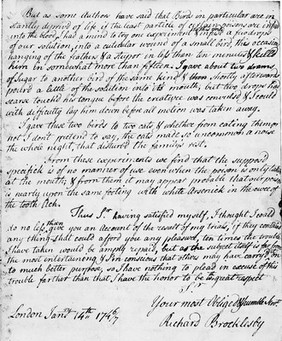 But as some Author have said that Birds in particular are in
stantly deprived of life if the least particle of poison are
into the blood, I had a mind to try one experiment a few drops
of our solution, into a cutidular wound of a small bird; this occasion
hanging of the feathers & a stupor only there Ten minutes & killed
him in somewhat more than fifteen. I gave about two drams
of Sugar to another Bird of the same kind & then shortly afterwards
poured a little of the solution into its mouth, but the drops had
scarce touched his tongue before the creature was convulsed & I could
with difficulty lay him down before all motion was taken away.
I gave these two birds to two cats & whether from eating them or
not I dont pretend to say, the cats made so uncommon a noise
the whole night, that disturbed the family's rest.
From these experiments we find that the supposed
specifick is of no manner of use even when the poison is only taken
at the mouth, & from them it may appear probable that sugar
is nearly upon the same footing with white Arsenick in the cure of
the tooth Ach.
Thus Sr. having satisfied myself, I thought I could
do no less than give you an account of the result of my trials, if they contain
any thing that could afford you any pleasure, ten times the trouble
I have taken would be amply repaid, but as the subject itself is far from
the most entertaining & I'm conscious that others may have carry'd it on
to much better purpose, so I have nothing to plead in excuse of this
trouble farther than that, I have the honor to be
Sr.
Your most Obliged & humble Servt.
London, Janry 14th 1746/7
Richard Brocklesby